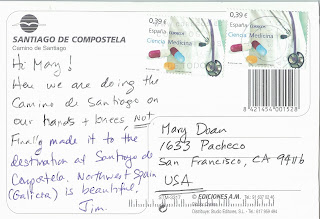 SANTIAGO DE COMPOSTELA
Camino de Santiago
Hi Mary!
Here we are doing the
Camino de Santiago on
our hands + knees, not.
Finally made it to the
destination at Santiago de
Compostela. Northwest Spain
(Galicia) is beautiful.
Jim.
0,39 €
España
Ciencia Medicina
0,39 €
España
Ciencia Medicina
8 421454 001528
Mary Doan
1633 Pacheco
San Francisco, CA 94116
USA
© EDICIONES A.M.